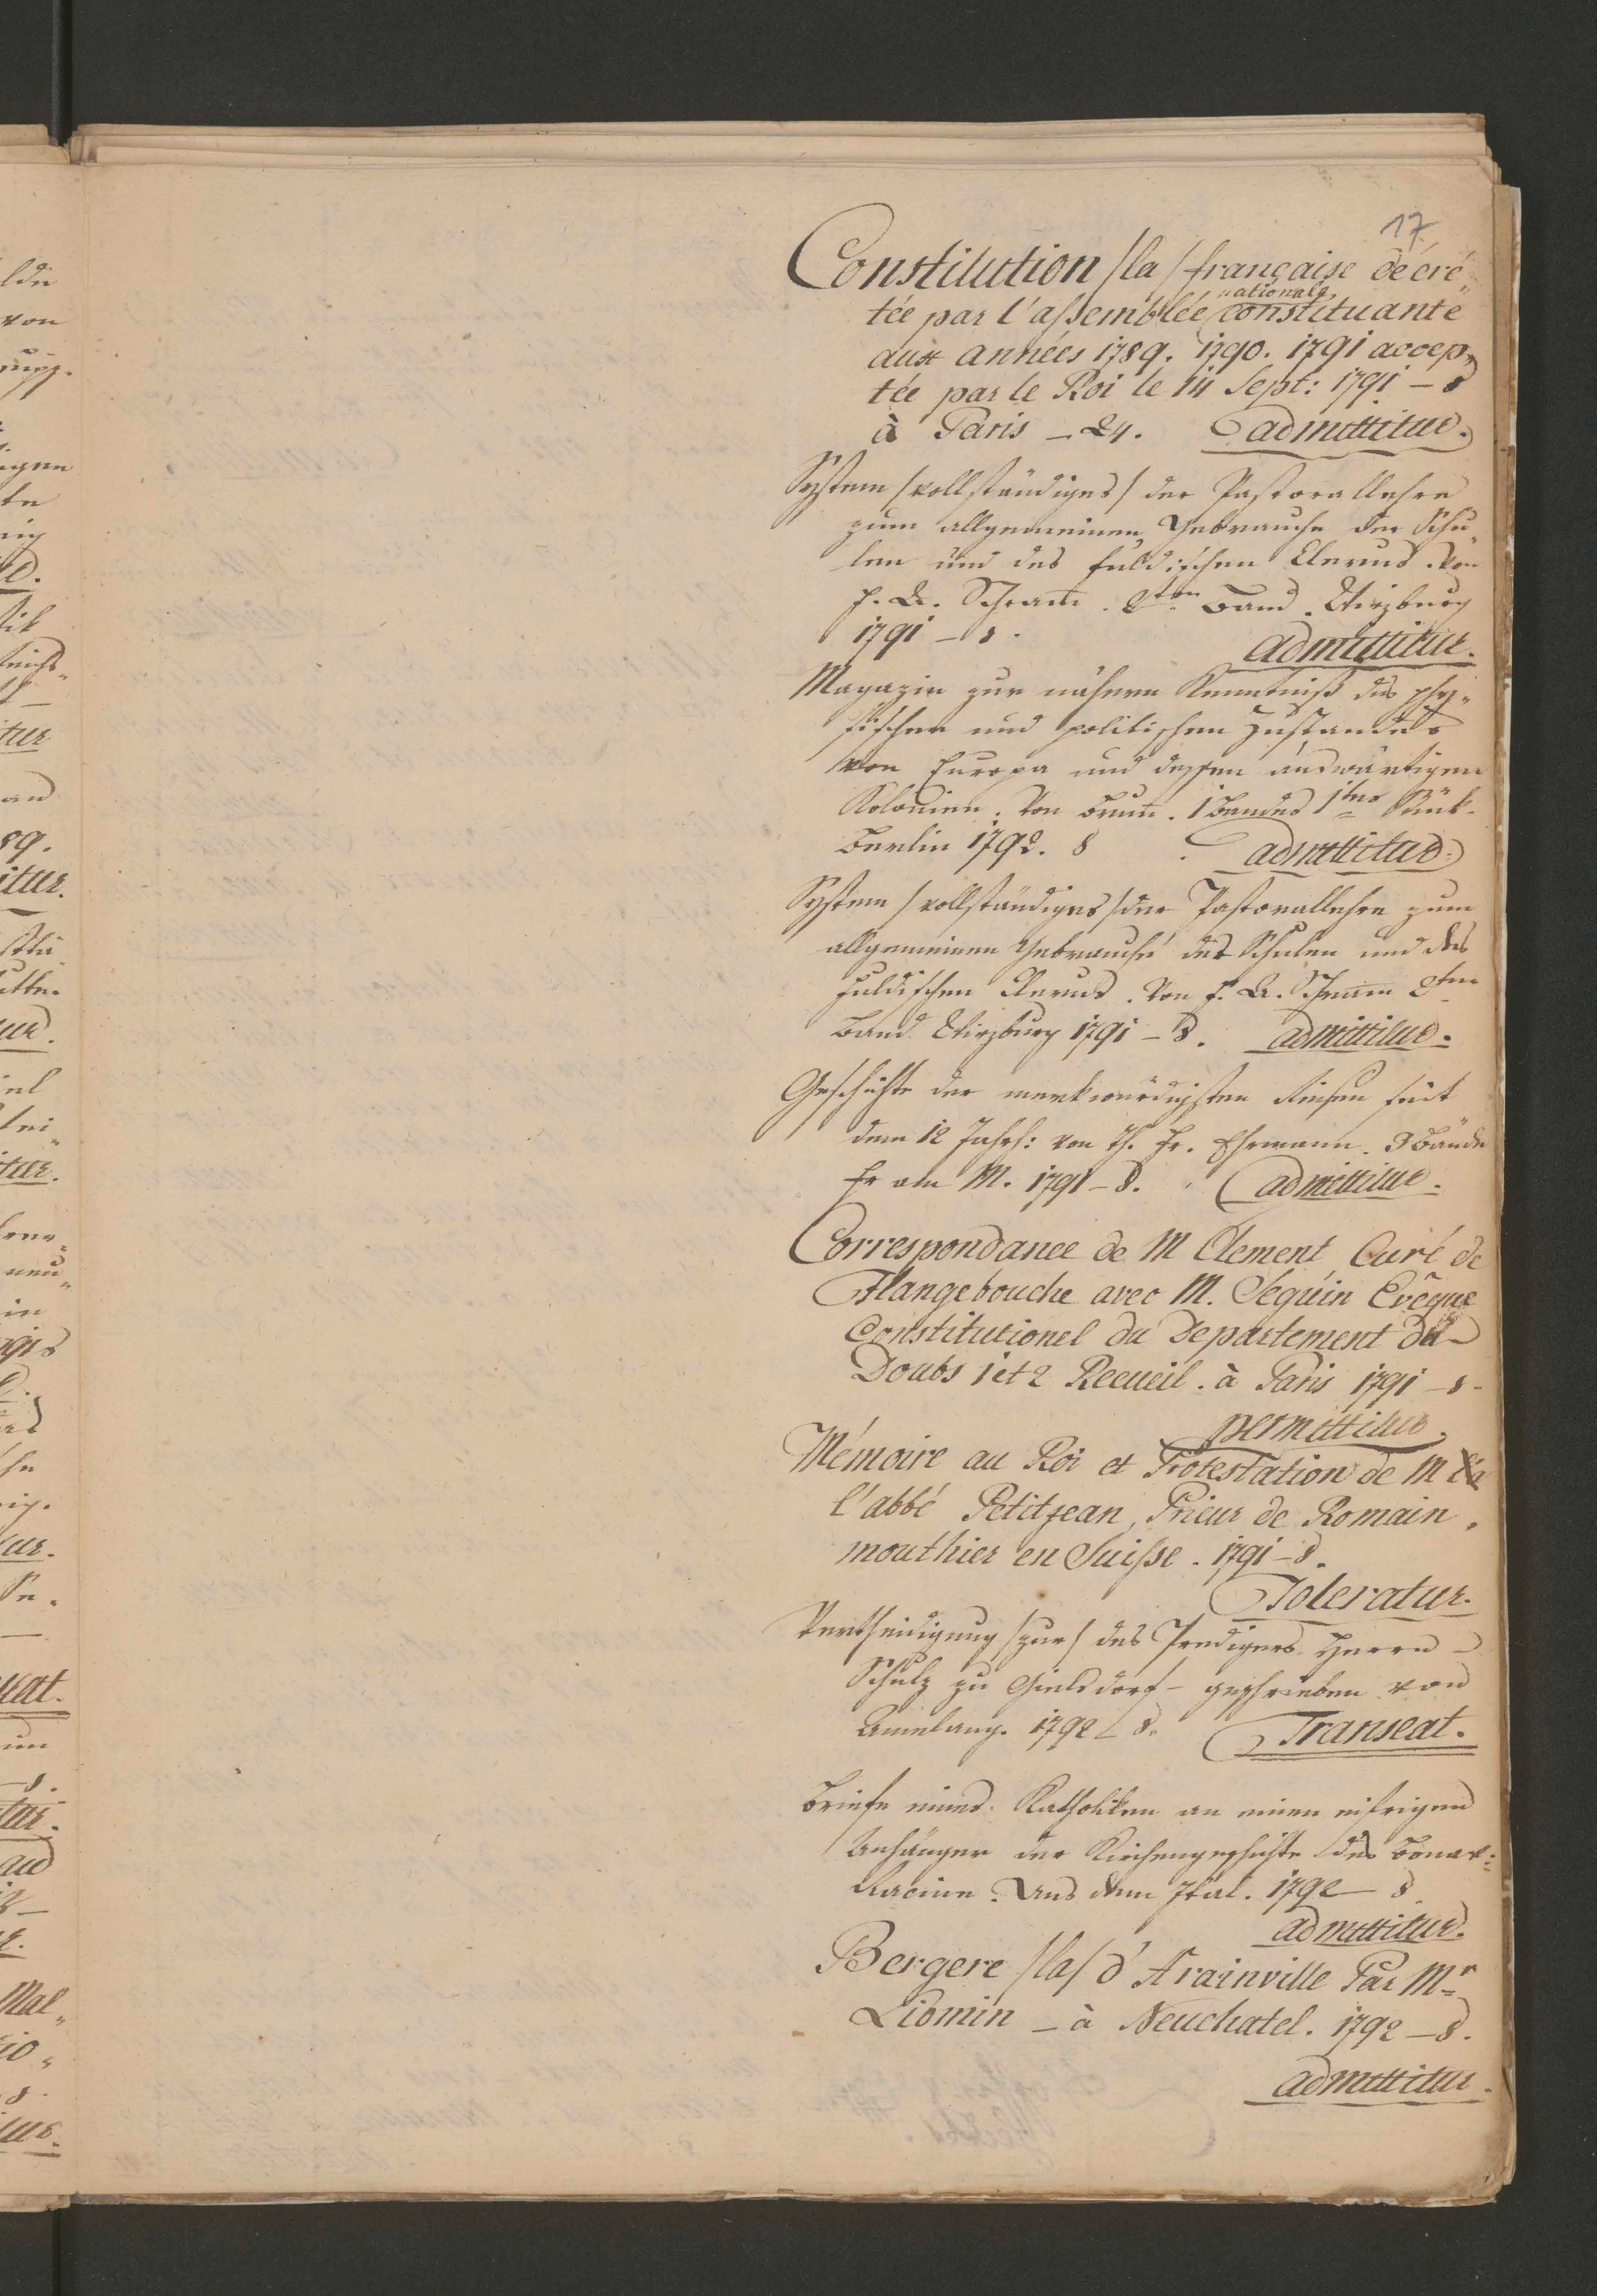 17
Constitution /la/ française décré„
tée par l'assemblée nationale constituante
aux années 1789. 1790. 1791 accep„
tée par le Roi le 14 Sept: 1791 – 8
à Paris – 24. admittitur.
System /vollständiges/ der Pastorallehre
zum allgemeinen Gebrauche der Schu„
len und des fuldischen Clerus. von
D. Schram̅. 2ten Band. Wirzburg
1791 – 8. admittitur.
Magazin zur nähern Kenntniß des phy„
sischen und politischen Zustandes
von Europa und dessen auswärtigen
Kolonien. Von Brun̅. 1 Bandes 1tes Stück.
Berlin 1792. 8 admittitur.
System /vollständiges/ der Pastorallehre zum
allgemeinen Gebrauche der Schulen und des
fuldischen Clerus. Von D. Schram̅ 2ten
Band. Wirzburg 1791 – 8. admittitur.
Geschichte der merkwürdigsten Reisen seit
dem 12 Jahrh: von Th. Fr. Ehrmann. 3 Bände
Fr am M. 1791 – 8. admittitur.
Correspondance de M Clement, Curé de
Flangebouche avec M. Seguin Evêque
Constitutionel du Departement du
Doubs 1 et 2 Recueil. à Paris 1791 – 8.
permittitur.
Mémoire au Roi et Protestation de M
l'abbé Petitjean, Prieur de Romain„
mouthier en Suisse. 1791 – 8.
Toleratur.
Vertheidigung /zur/ des Predigers Herrn
Schulz zu Gielsdorf – geschrieben von
Amelang. 1792 – 8. Transeat.
Briefe eines Katholiken an einen eifrigen
Anhänger der Kirchengeschichte des Bonav:
Racine. Aus dem Ital. 1792 – 8
admittitur.
Bergere /la/ d'Arainville Par Mr
Liomin – à Neuchatel. 1792 – 8.
admittitur.